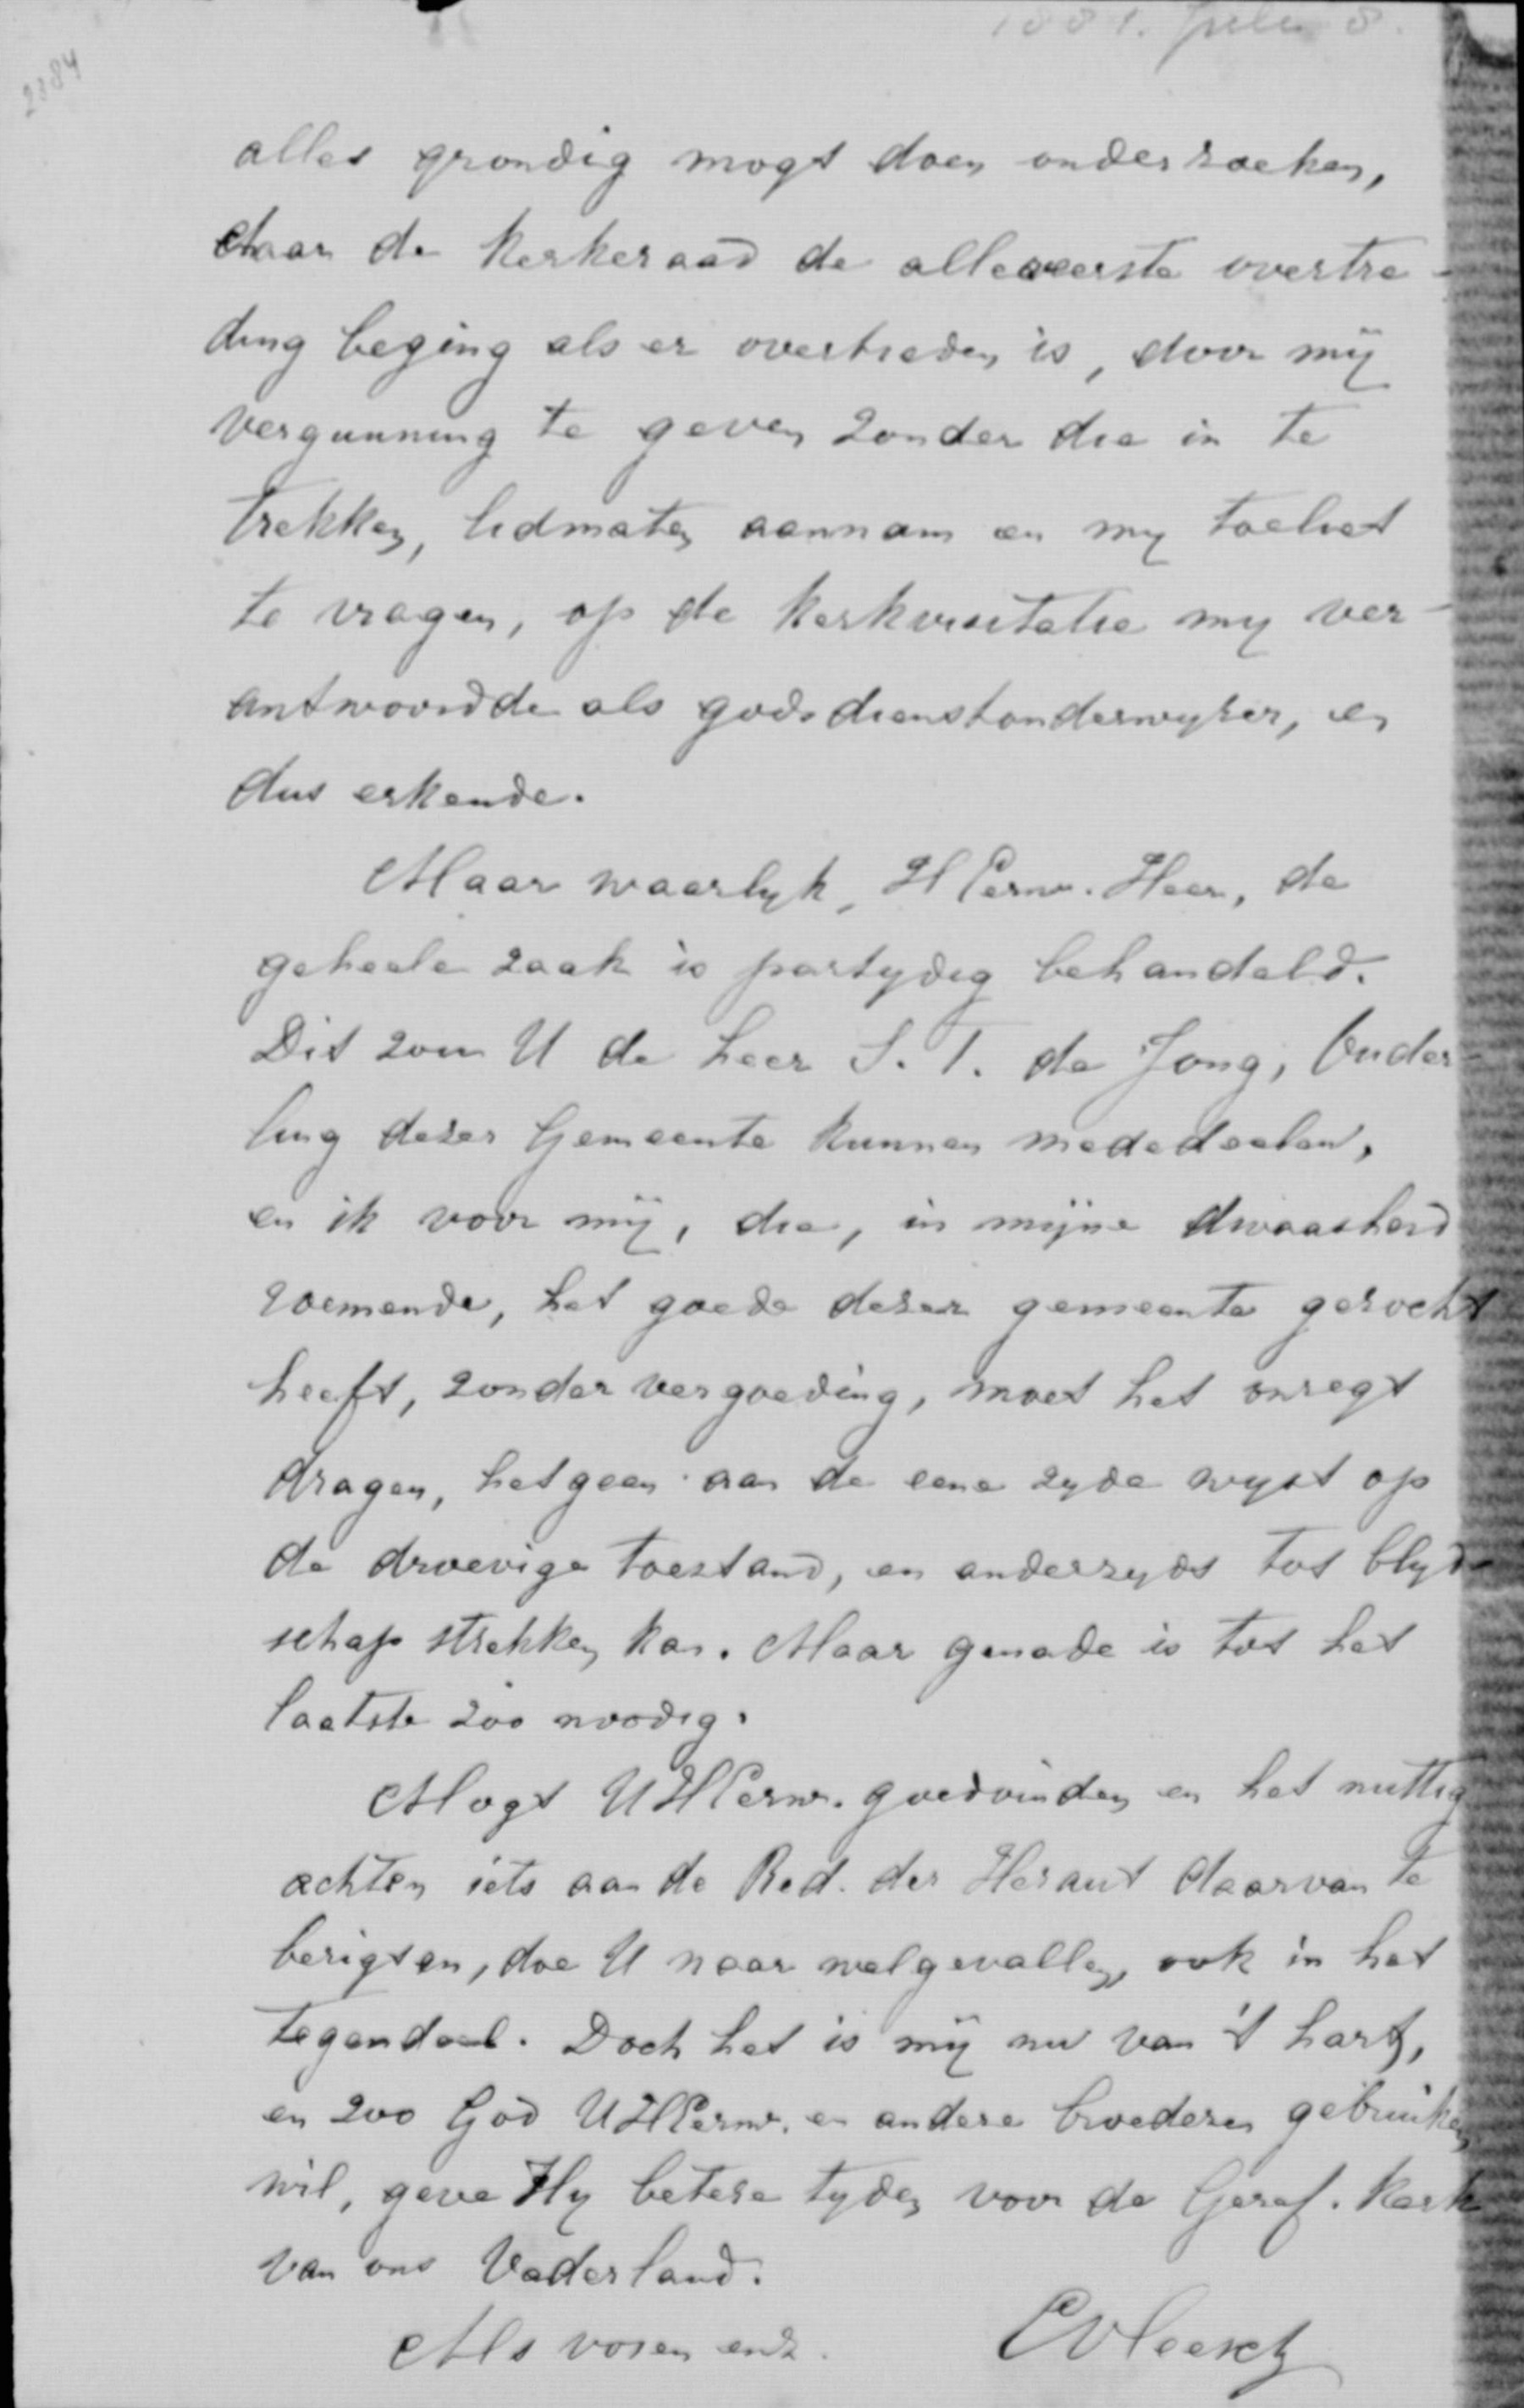 1881. Juli 8.
2384
alles grondig mogt doen onderzoeken,
daar de Kerkeraad de allereerste overtre-
ding beging als er overtreden is, door mij
vergunning te geven zonder die in te
trekken, lidmaten aannam en my toeliet
te vragen, op de Kerkvisitatie my ver-
antwoordde als godsdienstonderwyzer, en
dus erkende.
Maar waarlyk, HEerw. Heer, de
geheele zaak is partydig behandeld.
Dit zou U de heer S. T. de Jong, Ouder-
ling dezer Gemeente kunnen mededeelen,
en ik voor mij, die, in mijne dwaasheid
roemende, het goede dezer gemeente gezocht
heeft, zonder vergoeding, moet het onregt
dragen, hetgeen aan de eene zyde wyst op
de droevige toestand, en anderzyds tot blyd-
schap strekken kan. Maar genade is tot het
laatste zoo noodig.
Mogt UHEerw. goedvinden en het nuttig
achten iets aan de Red. der Heraut daarvan te
berigten, doe U naar welgevallen, ook in het
tegendeel. Doch het is mij nu van 't hart,
en zoo God UHEerw. en andere broederen gebruiken
wil, geve Hy betere tyden voor de Geref. Kerk
van ons Vaderland.
Als voren enz.